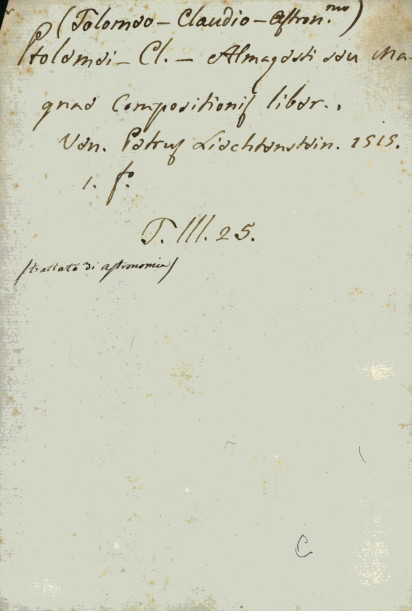 (Tolomeo - Claudio - Astron.mo)
Ptolemei - Cl. - Almagesti seu Ma-
gnae Compositionis liber.,
Ven. Petrus Liechtenstein. 1515.
1. fo.
T. III. 25.
(trattato di astronomia)
C